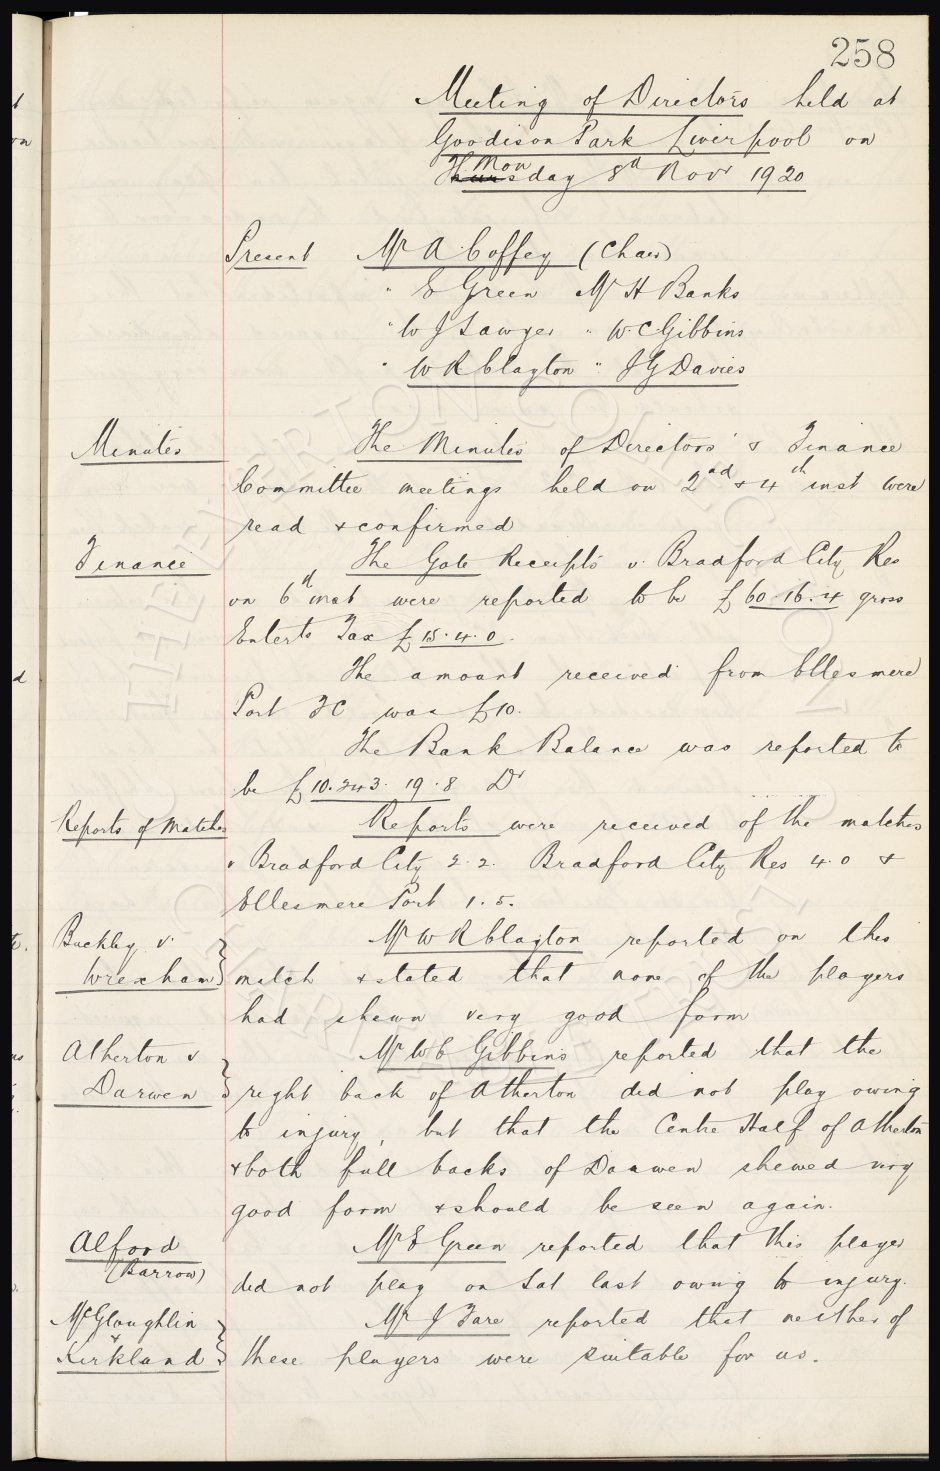 258
Meeting of Directors held at
Goodison Park Liverpool on
Monday 8th Novr 1920
Present Mr A Coffey (Chair)
" E Green Mr H Banks
" W J Sawyer " W C Gibbins
" W R Clayton " J G Davies
Minutes The Minutes of Directors' & Finance
Committee meetings held on 2nd & 4th inst were
read & confirmed
Finance The Gate Receipts v. Bradford City Res
on 6th inst were reported to be £60.16.4 gross
Enterts Tax £15.4.0.
The amount received from Ellesmere
Port FC was £10.
The Bank Balance was reported to
be £10.243.19.8 Dr
Reports of Matches Reports were received of the matches
v Bradford City 2.2. Bradford City Res 4.0 &
Ellesmere Port 1.5.
Buckley v. Mr W R Clayton reported on this
Wrexham match & stated that none of the players
had shewn very good form
Atherton v Mr W C Gibbins reported that the
Darwen right back of Atherton did not play owing
to injury, but that the Centre Half of Atherton
& both full backs of Darwen shewed very
good form & should be seen again.
Alford Mr E Green reported that this player
(Barrow) did not play on Sat last owing to injury.
McGloughlin Mr J Fare reported that neither of
& Kirkland these players were suitable for us.